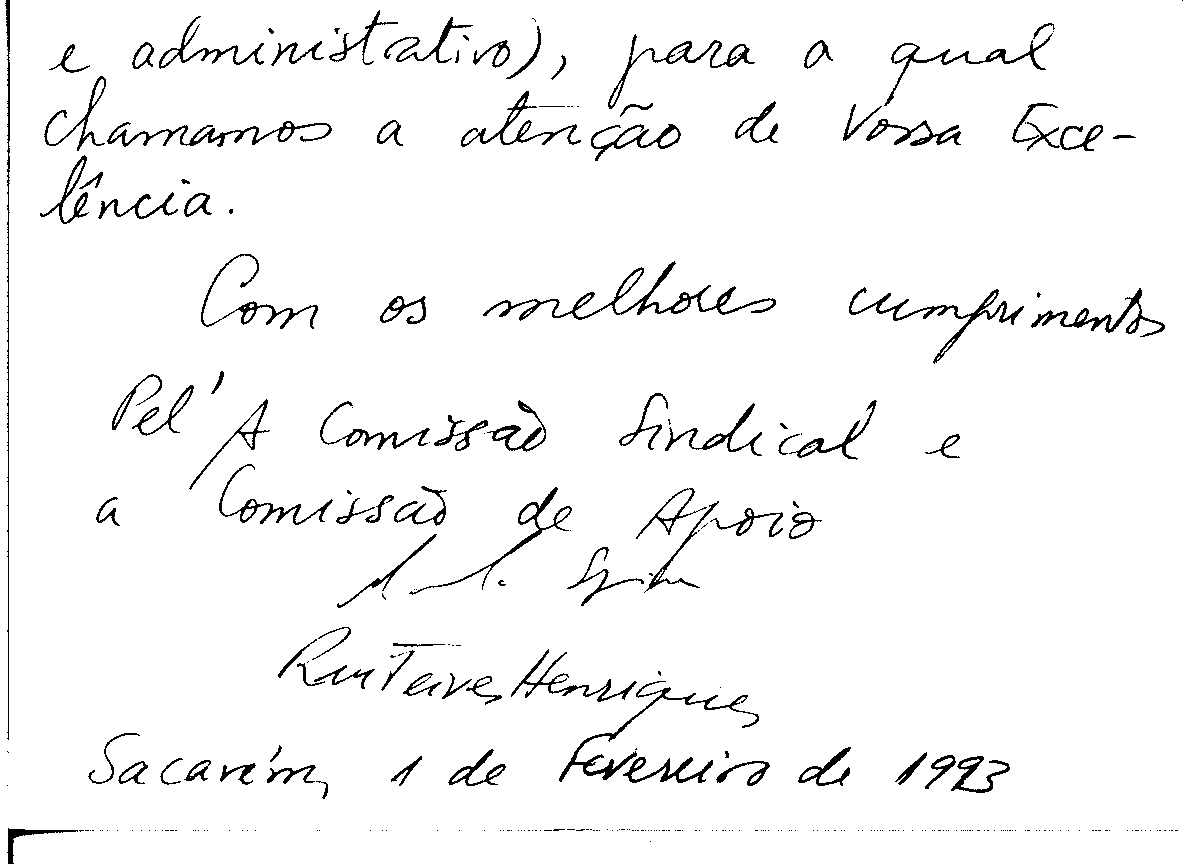 e administrativo), para a qual
chamamos a atenção de Vossa Exce-
lência.
Com os melhores cumprimentos
Pel' A Comissão Sindical e
a Comissão de Apoio
Rui Teives Henriques
Sacavém, 1 de Fevereiro de 1993